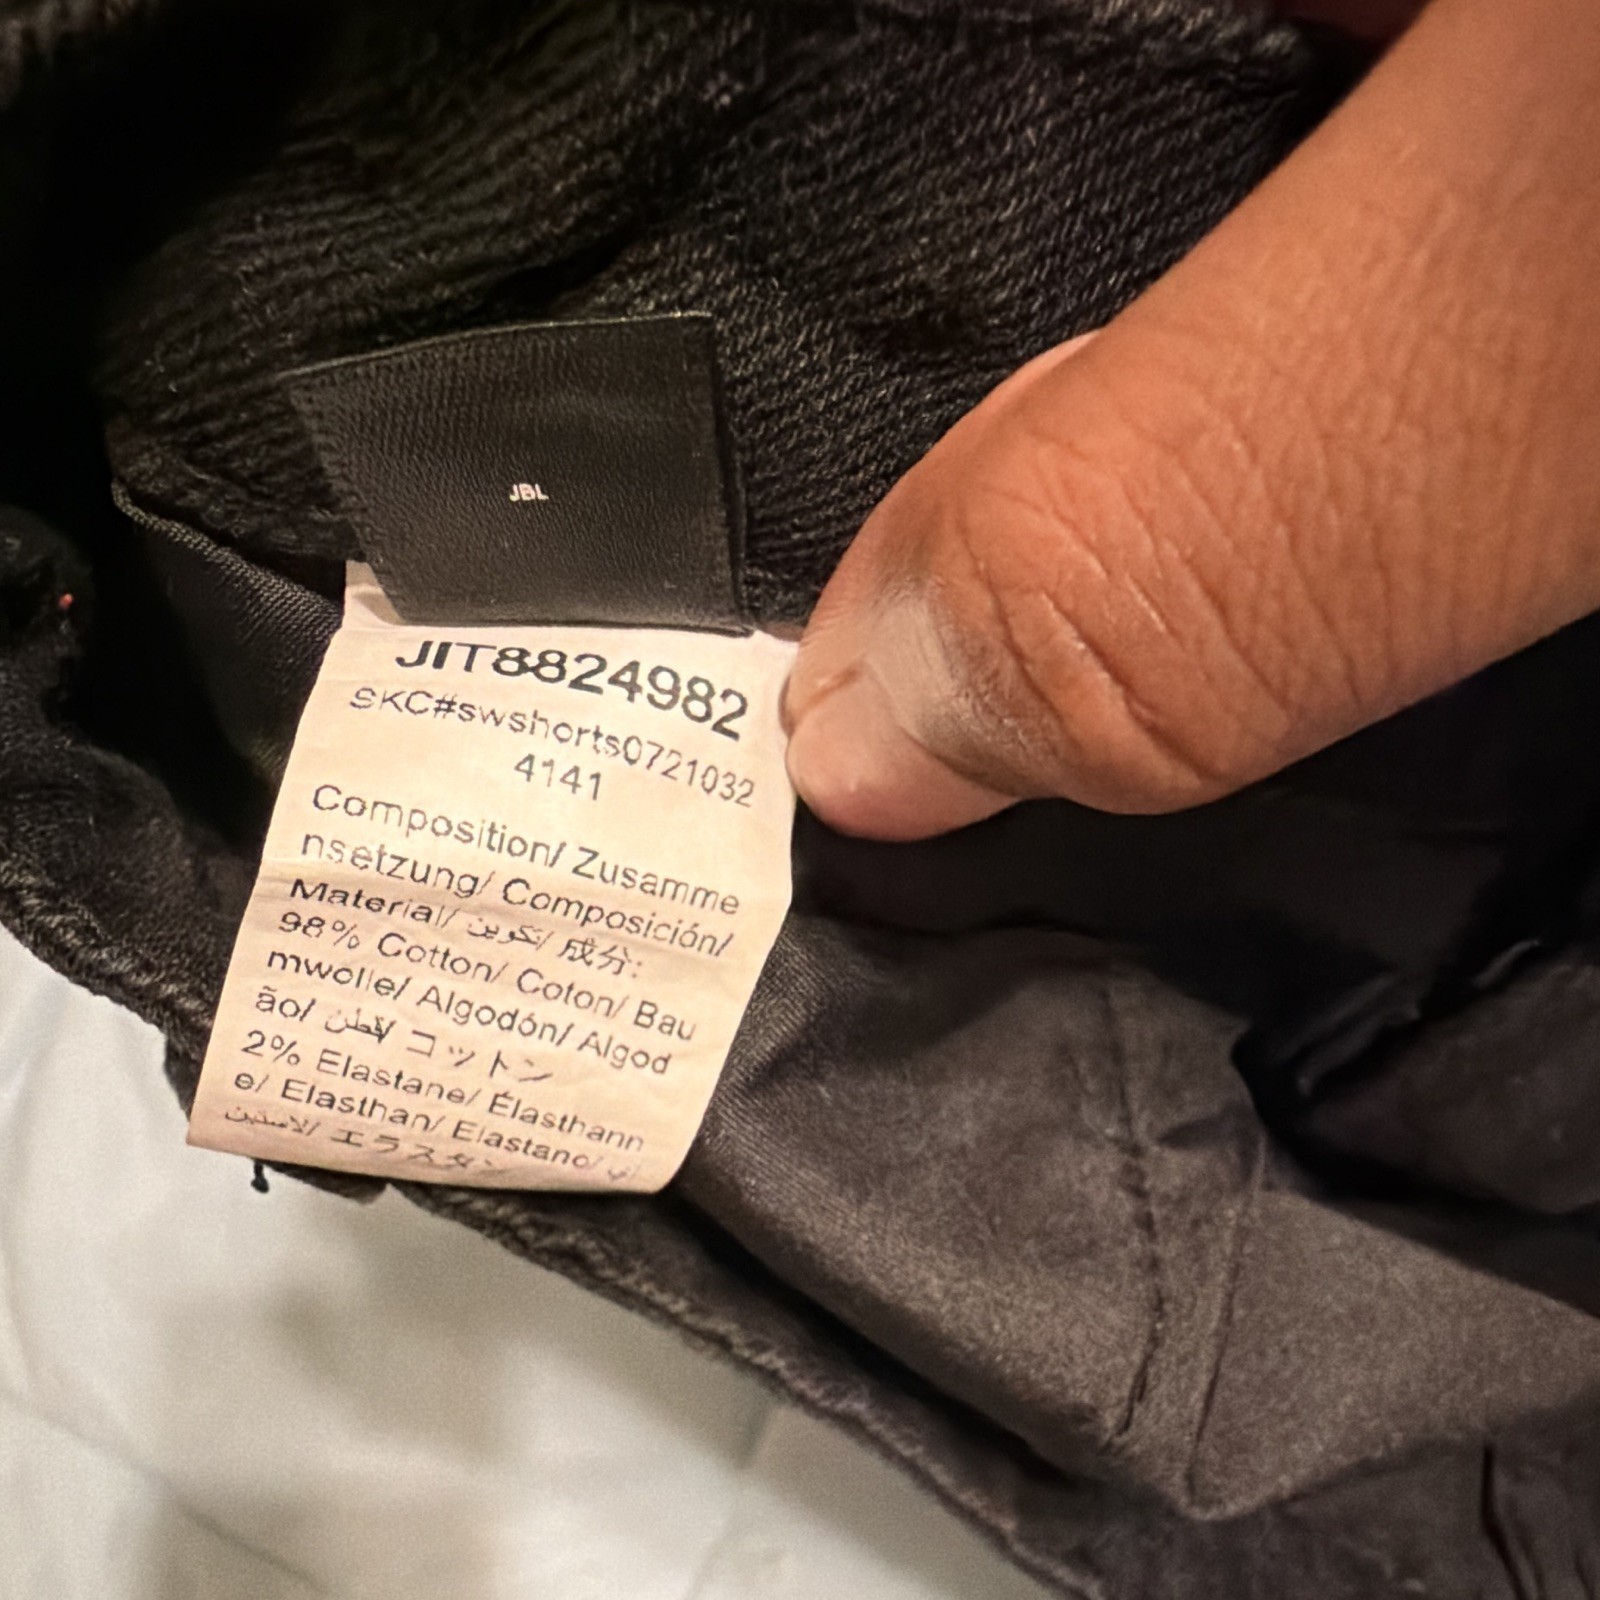 JBL
JIT8824982
SKC#swshorts0721032
4141
Composition/ Zusamme
nsetzung/ Composición/
Material/ تكوين/ 成分:
98% Cotton/ Coton/ Bau
mwolle/ Algodón/ Algod
ão/ قطن/ コットン
2% Elastane/ Élasthann
e/ Elasthan/ Elastano/
الاستين/ エラスタン